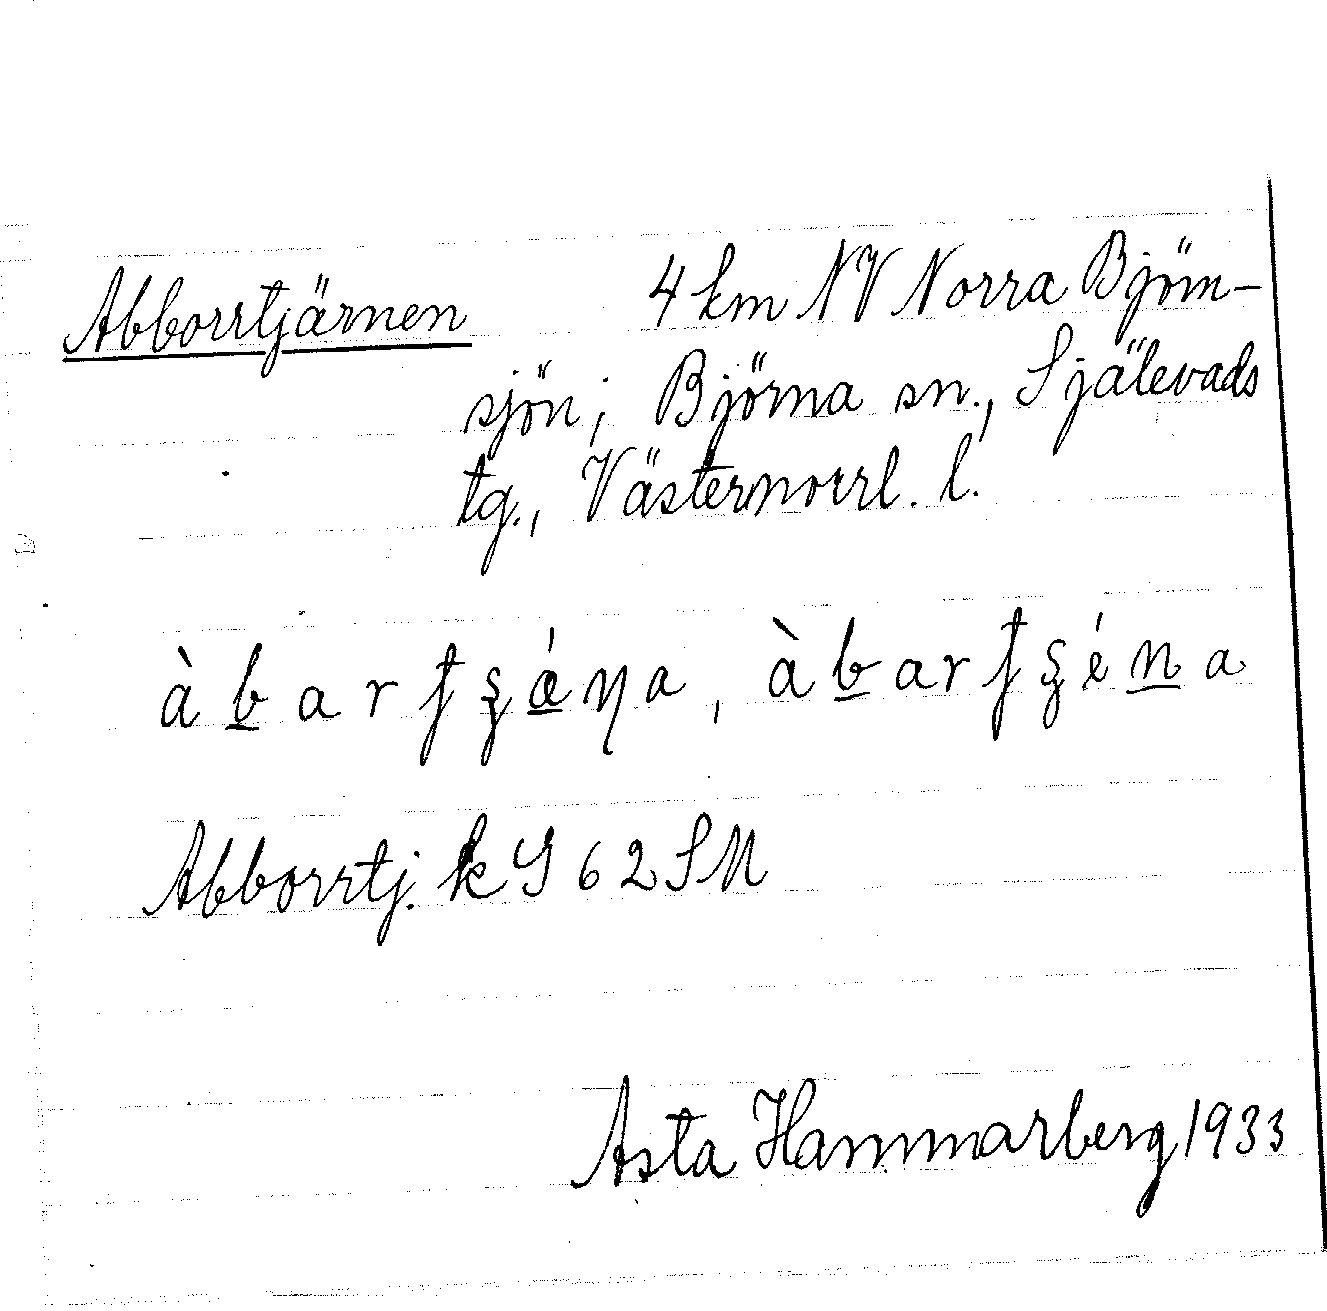 Abborrtjärnen 4 km NV Norra Björn-
sjön; Björna sn., Själevads
tg., Västernorrl. l.
àbarʈʂǽŋa, àbarʈʂéna
Abborrtj. k G 62 SM
Asta Hammarberg 1933